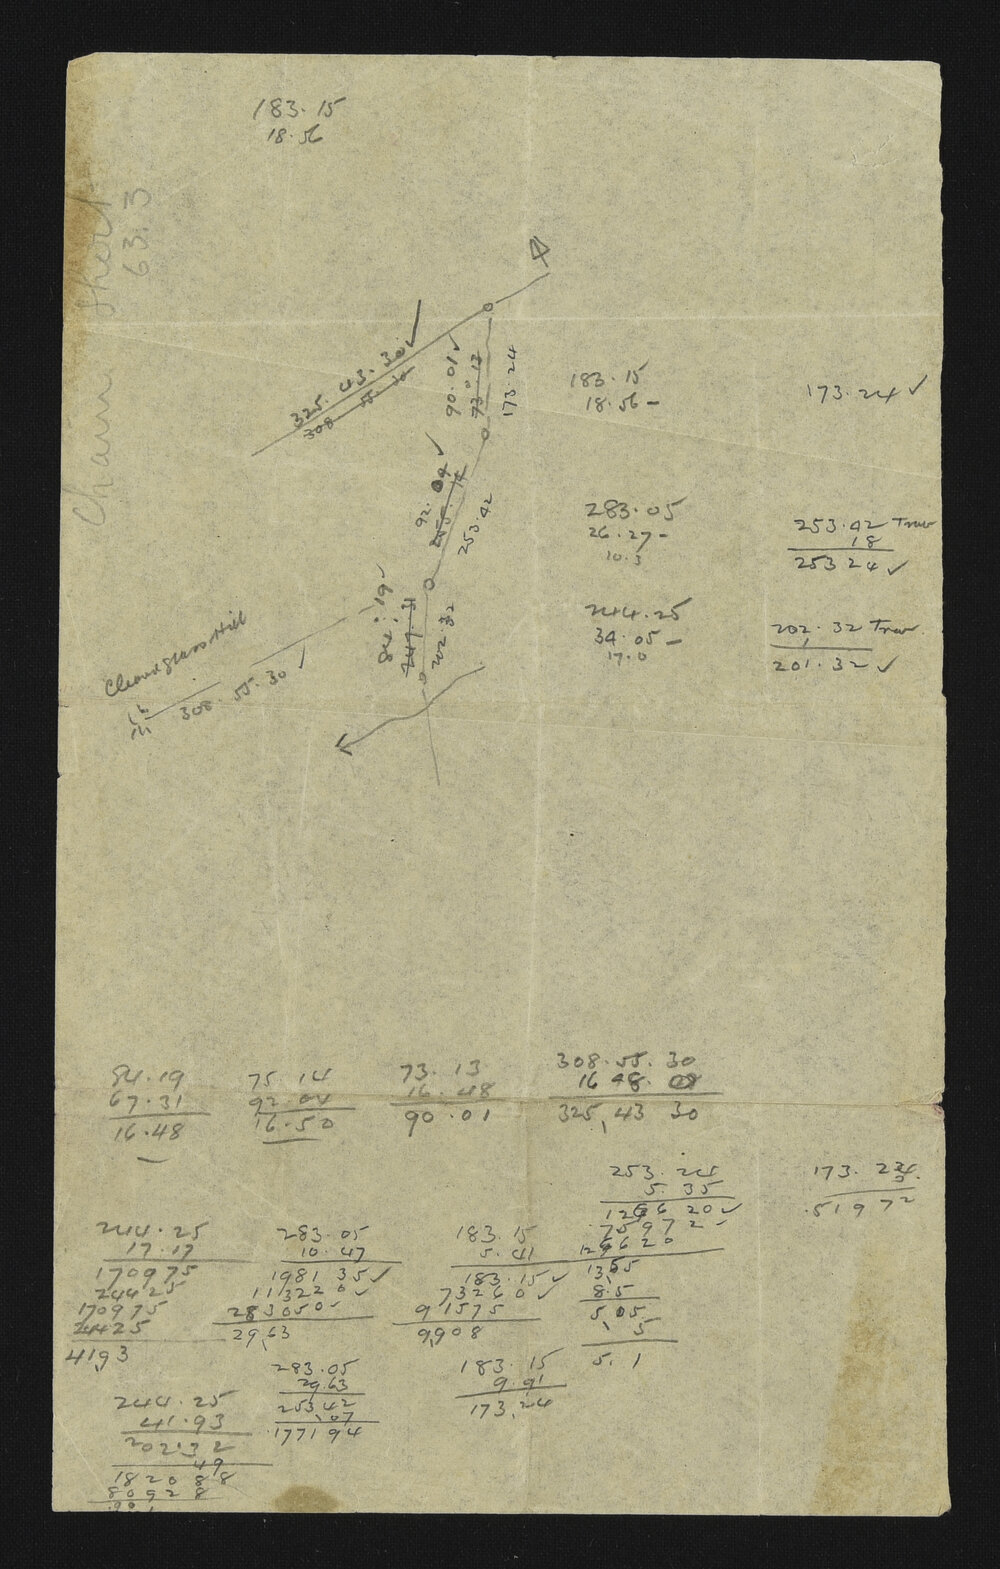 183. 15
18. 56
Chain short
63.3
325. 43. 30 ✓
308 55 10
90. 01 ✓
73° 14
173. 24
92. 04 ✓
255. 14
253. 42
84. 19 ✓
247 31
202. 32
308. 55. 30 ✓
183. 15
18. 56 -
173. 24 ✓
283. 05
26. 27 -
10. 3
253. 42 Trav
18
253 24 ✓
244. 25
34. 05 -
17. 0
202. 32 Trav.
201. 32 ✓
84. 19
67. 31
16. 48
75. 14
92. 04
16. 50
73. 13
16. 48
90. 01
308. 55. 30
16 48. 00
325, 43 30
253. 24
5. 35
1266 20 ✓
75972 -
126620
1355
8.5
5,05
5
5. 1
173. 24
3.
51972
244. 25
17. 17
170975
24425
170975
24425
41,93
283. 05
10. 47
1981 35 ✓
11322 0 ✓
283050 -
29,63
183. 15
5. 41
183. 15 ✓
7326 0 ✓
91575
9,908
244. 25
41. 93
202. 32
49
1820 88
8092 8
283. 05
29. 63
253 42
,07
1771 94
183. 15
9. 91
173, 24